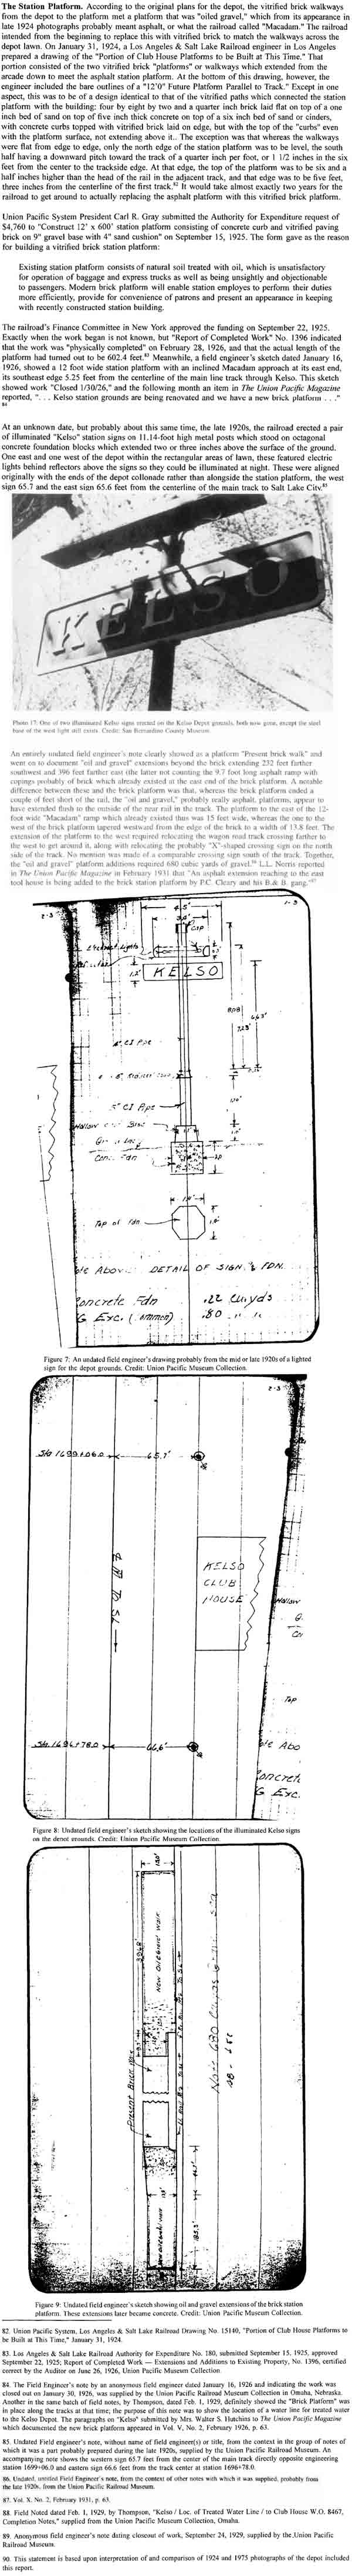 The Station Platform. According to the original plans for the depot, the vitrified brick walkways
from the depot to the platform met a platform that was "oiled gravel," which from its appearance in
late 1924 photographs probably meant asphalt, or what the railroad called "Macadam." The railroad
intended from the beginning to replace this with vitrified brick to match the walkways across the
depot lawn. On January 31, 1924, a Los Angeles & Salt Lake Railroad engineer in Los Angeles
prepared a drawing of the "Portion of Club House Platforms to be Built at This Time." That
portion consisted of the two vitrified brick "platforms" or walkways which extended from the
arcade down to meet the asphalt station platform. At the bottom of this drawing, however, the
engineer included the bare outlines of a "12'0" Future Platform Parallel to Track." Except in one
aspect, this was to be of a design identical to that of the vitrified paths which connected the station
platform with the building: four by eight by two and a quarter inch bricks laid flat on top of a one
inch bed of sand on top of five inch thick concrete on top of a six inch bed of sand or cinders,
with concrete curbs topped with vitrified brick laid on edge, but with the top of the "curbs" even
with the platform surface, not extending above it. The exception was that whereas the walkways
were flat from edge to edge, only the north edge of the station platform was to be level, the south
half having a downward pitch toward the track of a quarter inch per foot, or 1 1/2 inches in the six
feet from the center to the trackside edge. At that edge, the top of the platform was to be six and a
half inches higher than the head of the rail in the adjacent track, and that edge was to be five feet,
three inches from the centerline of the first track.82 It would take almost exactly two years for the
railroad to get around to actually replacing the asphalt platform with this vitrified brick platform.
Union Pacific System President Carl R. Gray submitted the Authority for Expenditure request of
$4,760 to "Construct 12' x 600' station platform consisting of concrete curb and vitrified paving
brick on 9" gravel base with 4" sand cushion" on September 15, 1925. The form gave as the reason
for building a vitrified brick station platform:
Existing station platform consists of natural soil treated with oil, which is unsatisfactory
for operation of baggage and express trucks as well as being unsightly and objectionable
to passengers. Modern brick platform will enable station employes to perform their duties
more efficiently, provide for convenience of patrons and present an appearance in keeping
with recently constructed station building.
The railroad's Finance Committee in New York approved the funding on September 22, 1925.
Exactly when the work began is not known, but "Report of Completed Work" No. 1396 indicated
that the work was "physically completed" on February 28, 1926, and that the actual length of the
platform had turned out to be 602.4 feet.83 Meanwhile, a field engineer's sketch dated January 16,
1926, showed a 12 foot wide station platform with an inclined Macadam approach at its east end,
its southeast edge 5.25 feet from the centerline of the main line track through Kelso. This sketch
showed work "Closed 1/30/26," and the following month an item in The Union Pacific Magazine
reported, ". . . Kelso station grounds are being renovated and we have a new brick platform . . ."
84
At an unknown date, but probably about this same time, the late 1920s, the railroad erected a pair
of illuminated "Kelso" station signs on 11.14-foot high metal posts which stood on octagonal
concrete foundation blocks which extended two or three inches above the surface of the ground.
One east and one west of the depot within the rectangular areas of lawn, these featured electric
lights behind reflectors above the signs so they could be illuminated at night. These were aligned
originally with the ends of the depot collonade rather than alongside the station platform, the west
sign 65.7 and the east sign 65.6 feet from the centerline of the main track to Salt Lake City.85
KELSO
Photo 17: One of two illuminated Kelso signs erected on the Kelso Depot grounds, both now gone, except the steel
base of the west light still exists. Credit: San Bernardino County Museum.
An entirely undated field engineer's note clearly showed as a platform "Present brick walk" and
went on to document "oil and gravel" extensions beyond the brick extending 232 feet farther
southwest and 396 feet farther east (the latter not counting the 9.7 foot long asphalt ramp with
copings probably of brick which already existed at the east end of the brick platform. A notable
difference between these and the brick platform was that, whereas the brick platform ended a
couple of feet short of the rail, the "oil and gravel," probably really asphalt, platforms, appear to
have extended flush to the outside of the near rail in the track. The platform to the east of the 12-
foot wide "Macadam" ramp which already existed thus was 15 feet wide, whereas the one to the
west of the brick platform tapered westward from the edge of the brick to a width of 13.8 feet. The
extension of the platform to the west required relocating the wagon road track crossing farther to
the west to get around it, along with relocating the probably "X"-shaped crossing sign on the north
side of the track. No mention was made of a comparable crossing sign south of the track. Together,
the "oil and gravel" platform additions required 680 cubic yards of gravel.86 L.L. Norris reported
in The Union Pacific Magazine in February 1931 that "An asphalt extension reaching to the east
tool house is being added to the brick station platform by P.C. Cleary and his B.& B. gang."87
2-3
4.5'
3.4'
Cap
KELSO
1.2'
7.23'
6.63'
4" CI Pipe
5" CI Pipe
Hollow
Conc. Fdn
Top of Fdn
Above DETAIL OF SIGN & FDN.
Concrete Fdn .22 Cu yds
G Exc. (ommon) .80 " "
Figure 7: An undated field engineer's drawing probably from the mid or late 1920s of a lighted
sign for the depot grounds. Credit: Union Pacific Museum Collection.
2-3
Sta 1699+06.0
65.7'
KELSO
CLUB
HOUSE
Hollow
Top
Sta. 1696+78.0
66.6'
Abo
Concrete
G Exc.
Figure 8: Undated field engineer's sketch showing the locations of the illuminated Kelso signs
on the depot grounds. Credit: Union Pacific Museum Collection.
Present Brick Walk
Figure 9: Undated field engineer's sketch showing oil and gravel extensions of the brick station
platform. These extensions later became concrete. Credit: Union Pacific Museum Collection.
82. Union Pacific System, Los Angeles & Salt Lake Railroad Drawing No. 15140, "Portion of Club House Platforms to
be Built at This Time," January 31, 1924.
83. Los Angeles & Salt Lake Railroad Authority for Expenditure No. 180, submitted September 15, 1925, approved
September 22, 1925; Report of Completed Work — Extensions and Additions to Existing Property, No. 1396, certified
correct by the Auditor on June 26, 1926, Union Pacific Museum Collection
84. The Field Engineer's note by an anonymous field engineer dated January 16, 1926 and indicating the work was
closed out on January 30, 1926, was supplied by the Union Pacific Railroad Museum Collection in Omaha, Nebraska.
Another in the same batch of field notes, by Thompson, dated Feb. 1, 1929, definitely showed the "Brick Platform" was
in place along the tracks at that time; the purpose of this note was to show the location of a water line for treated water
to the Kelso Depot. The paragraphs on "Kelso" submitted by Mrs. Walter S. Hutchins to The Union Pacific Magazine
which documented the new brick platform appeared in Vol. V, No. 2, February 1926, p. 63.
85. Undated Field Engineer's note, without name of field engineer(s) or title, from the context in the group of notes of
which it was a part probably prepared during the late 1920s, supplied by the Union Pacific Railroad Museum. An
accompanying note shows the western sign 65.7 feet from the center of the main track directly opposite engineering
station 1699+06.0 and eastern sign 66.6 feet from the track center at station 1696+78.0.
86. Undated, untitled Field Engineer's note, from the context of other notes with which it was supplied, probably from
the late 1920s, from the Union Pacific Railroad Museum.
87. Vol. X, No. 2, February 1931, p. 63.
88. Field Noted dated Feb. 1, 1929, by Thompson, "Kelso / Loc. of Treated Water Line / to Club House W.O. 8467,
Completion Notes," supplied from the Union Pacific Museum Collection, Omaha.
89. Anonymous field engineer's note dating closeout of work, September 24, 1929, supplied by the Union Pacific
Railroad Museum.
90. This statement is based upon interpretation of and comparison of 1924 and 1975 photographs of the depot included
this report.